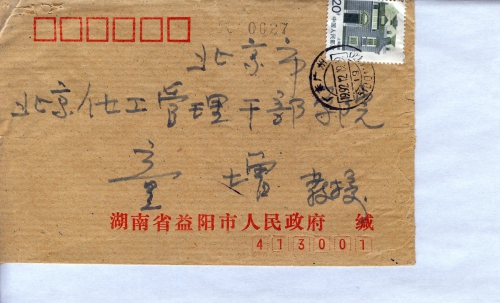 0027
20
北京市
北京化工管理干部学院
童增 教授
湖南省益阳市人民政府 缄
413001